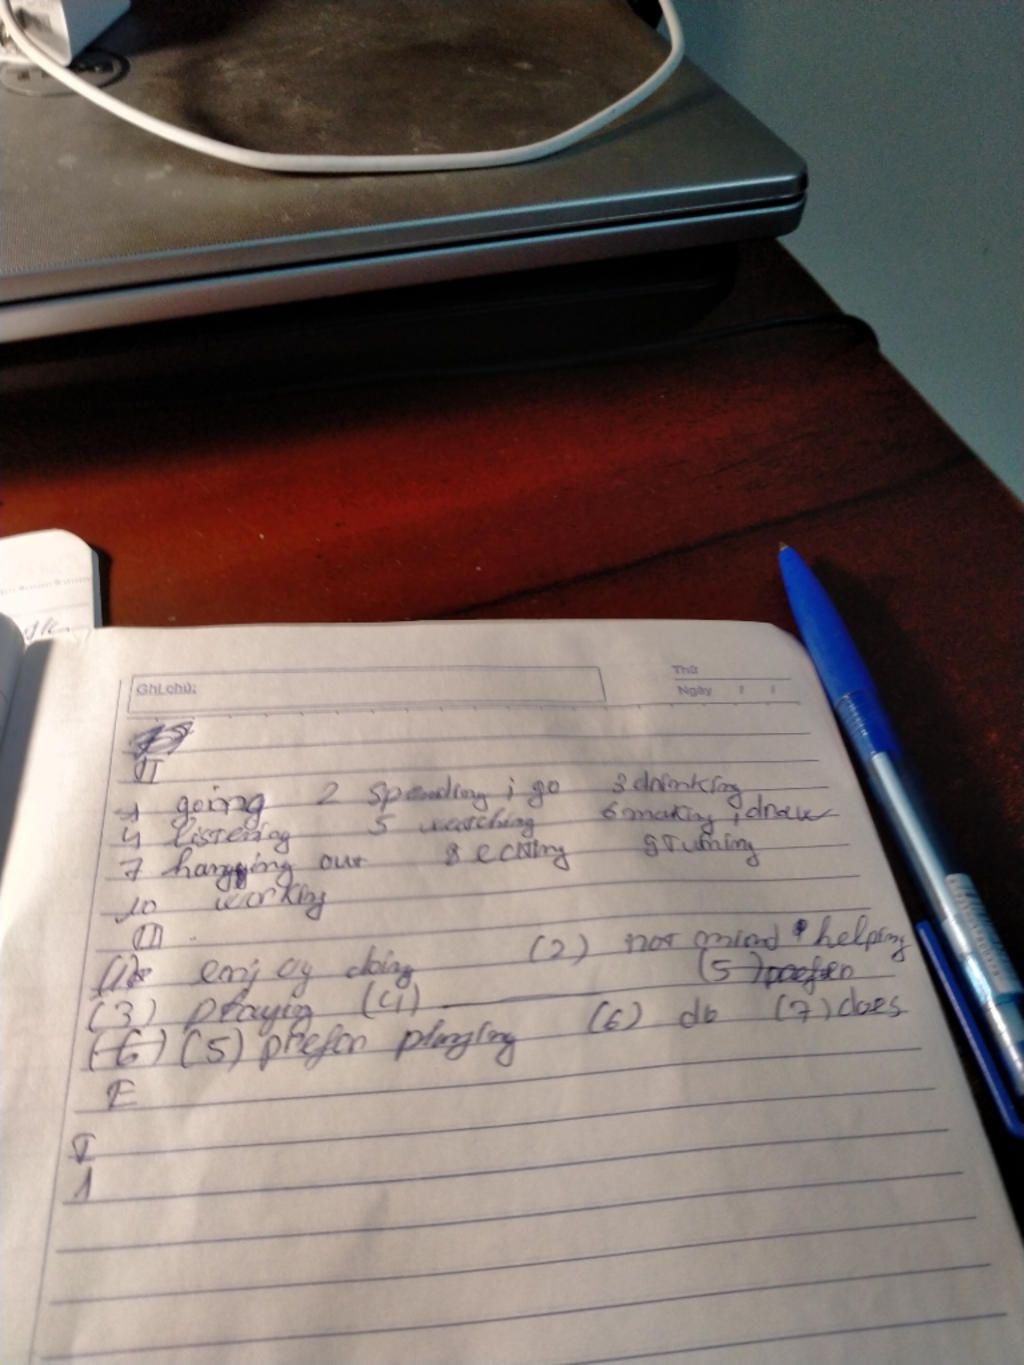 Ghi chú:
Thứ
Ngày / /
II
1 going 2 spending ; go 3 drinking
4 listening 5 watching 6 making ; draw
7 hanging out 8 ecting 9 Tuming
10 working
III
(1) enj oy doing (2) not mind helping
(3) playig (4) (5) prefer
(6) (5) prefer playing (6) do (7) does
E
I
1